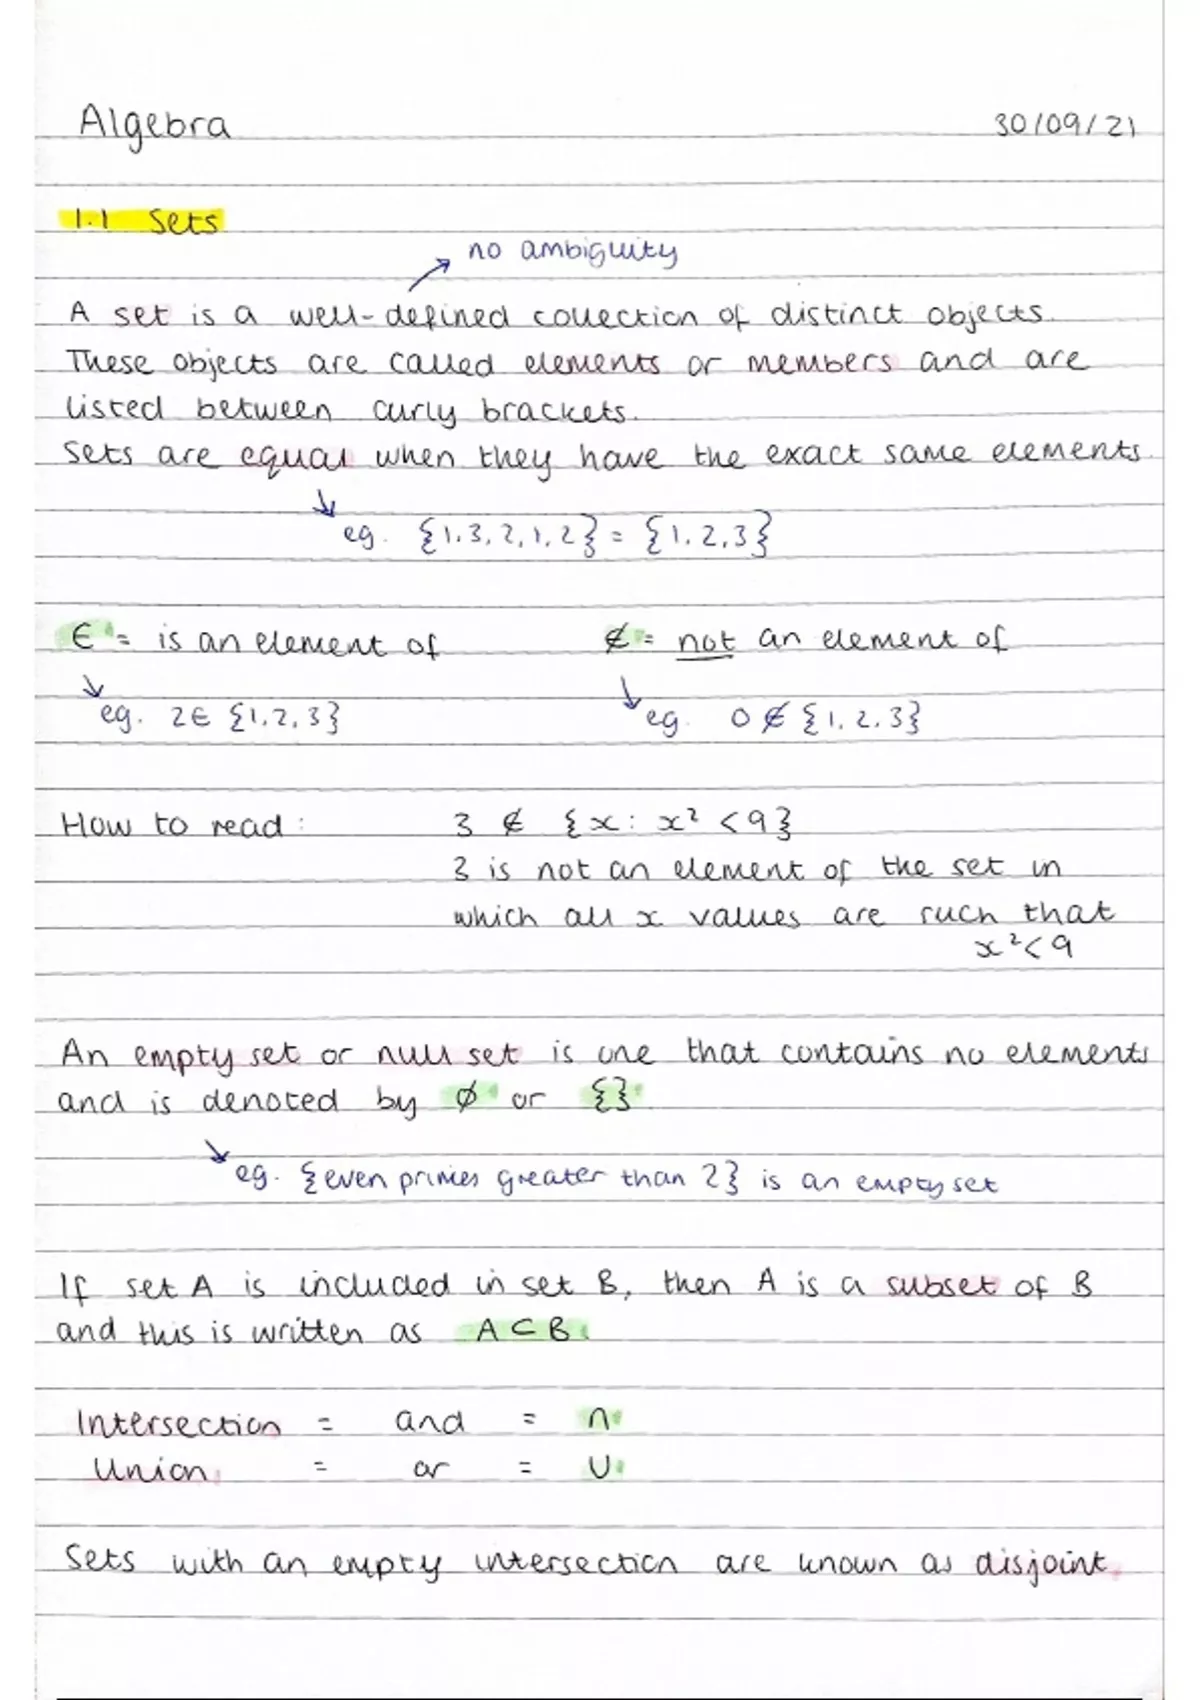 Algebra 30/09/21
1.1 Sets
no ambiguity
A set is a well-defined collection of distinct objects.
These objects are called elements or members and are
listed between curly brackets.
Sets are equal when they have the exact same elements.
eg. {1,3,2,1,2} = {1,2,3}
∈ = is an element of ∉ = not an element of
eg. 2∈ {1,2,3} eg. 0 ∉ {1,2,3}
How to read: 3 ∉ {x: x² <9}
3 is not an element of the set in
which all x values are such that
x²<9
An empty set or null set is one that contains no elements
and is denoted by ∅ or {}
eg. {even primes greater than 2} is an empty set
If set A is included in set B, then A is a subset of B
and this is written as A⊂B.
Intersection = and = ∩
Union = or = ∪
Sets with an empty intersection are known as disjoint.